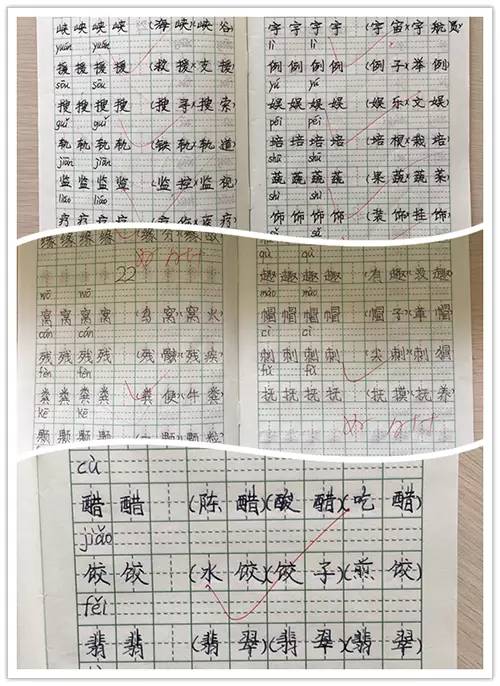 峡 峡 峡 峡 (海 峡)(峡 谷)
yuán yuán
援 援 援 援 (救 援)(支 援)
sōu sōu
搜 搜 搜 搜 (搜 寻)(搜 索)
guǐ guǐ
轨 轨 轨 轨 (铁 轨)(轨 道)
jiān jiān
监 监 监 监 (监 控)(监 视)
liáo liáo
疗 疗 疗 疗
宇 宇 宇 宇 (宇 宙)(宇 航员)
lì lì
例 例 例 例 (例 子)(举 例)
yú yú
娱 娱 娱 娱 (娱 乐)(文 娱)
péi péi
培 培 培 培 (培 根)(栽 培)
shū shū
蔬 蔬 蔬 蔬 (果 蔬)(蔬 菜)
shì shì
饰 饰 饰 饰 (装 饰)(挂 饰)
sǎ
缘 缘 缘 缘
22
wō wō
窝 窝 窝 窝
cán cán
残 残 残 残
fèn fèn
粪 粪 粪 粪 (粪 便)(牛 粪)
kē kē
颗 颗 颗 颗
qù qù
趣 趣 趣 趣 (有 趣)(没 趣)
mào mào
帽 帽 帽 帽 (帽 子)(草 帽)
cì cì
刺 刺 刺 刺 (尖 刺)(刺 猬)
fǔ fǔ
抚 抚 抚 抚 (抚 摸)(抚 养)
cù
醋 醋 (陈 醋)(酸 醋)(吃 醋)
jiǎo
饺 饺 (水 饺)(饺 子)(煎 饺)
fěi
翡 翡 (翡 翠)(翡 翠)(翡 翠)